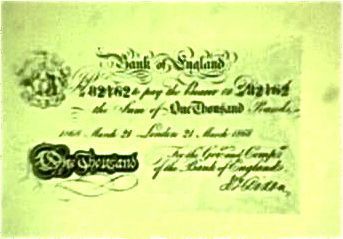 Bank of England
82162 to pay the Bearer on D 82162
the Sum of One Thousand Pounds
March 21 London 21 March
One Thousand For the Govr and Compa
of the Bank of England